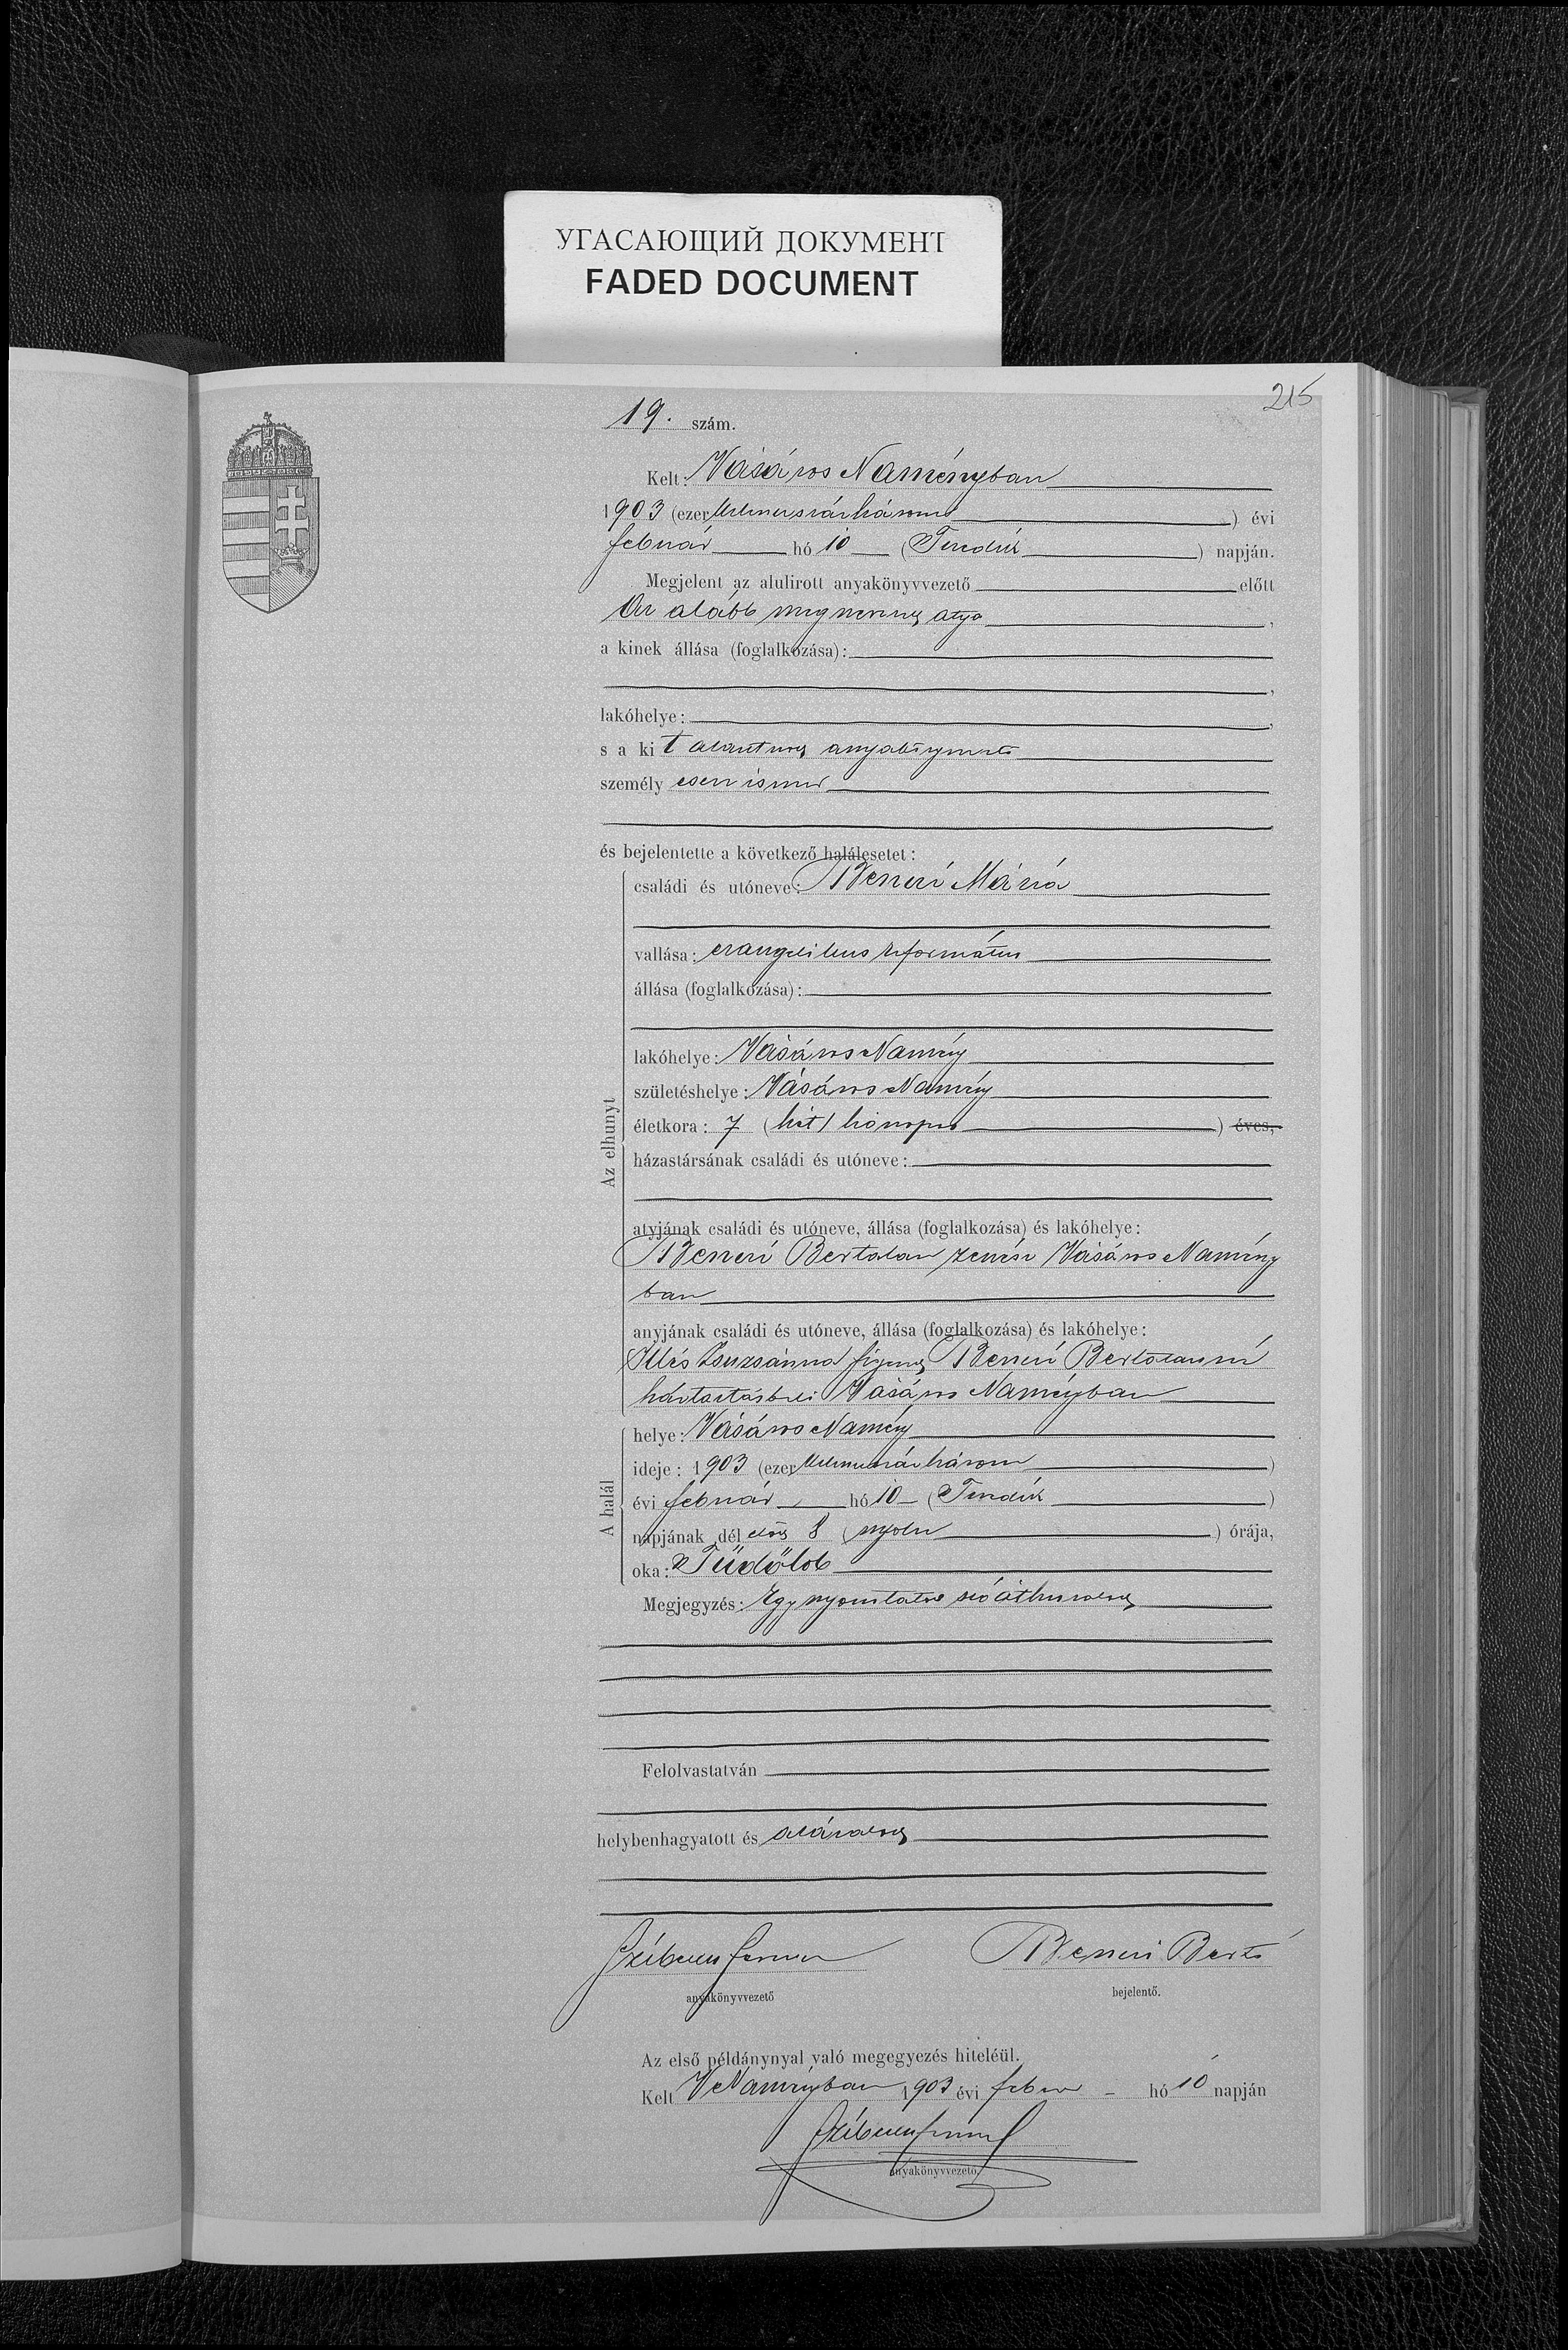 УГАСАЮЩИЙ ДОКУМЕНТ
FADED DOCUMENT
215
19. szám.
Kelt: Vásáros Naményban
1903 (ezerkilenczszázhárom) évi
február hó 10 (Tizedik) napján.
Megjelent az alulirott anyakönyvvezető előtt
Az alább megnevezett atya,
a kinek állása (foglalkozása):
lakóhelye:
s a kit anyakönyvvezető
személyesen ismer
és bejelentette a következő halálesetet:
családi és utóneve: Mária
vallása: evangelikus református
állása (foglalkozása):
lakóhelye: Vásáros Namény
születéshelye: Vásáros Namény
életkora: 7 (hét) hónapos) éves,
házastársának családi és utóneve:
Az elhunyt
atyjának családi és utóneve, állása (foglalkozása) és lakóhelye:
Bertalan zenész Vásáros Namény
ban
anyjának családi és utóneve, állása (foglalkozása) és lakóhelye:
Illés Zsuzsánna Bertalanné
háztartásbeli Vásáros Naményban
A halál
helye: Vásáros Namény
ideje: 1903 (ezerkilenczszázhárom)
évi február hó 10 (Tizedik)
napjának délelőtt 8 (nyolcz) órája,
oka: Tüdőlob
Megjegyzés: Egy nyomtatott szó áthuzatott
Felolvastatván
helybenhagyatott és aláiratott
anyakönyvvezető
bejelentő.
Az első példánynyal való megegyezés hiteléül.
Kelt V Naményban 1903 évi február hó 10 napján
anyakönyvvezető.